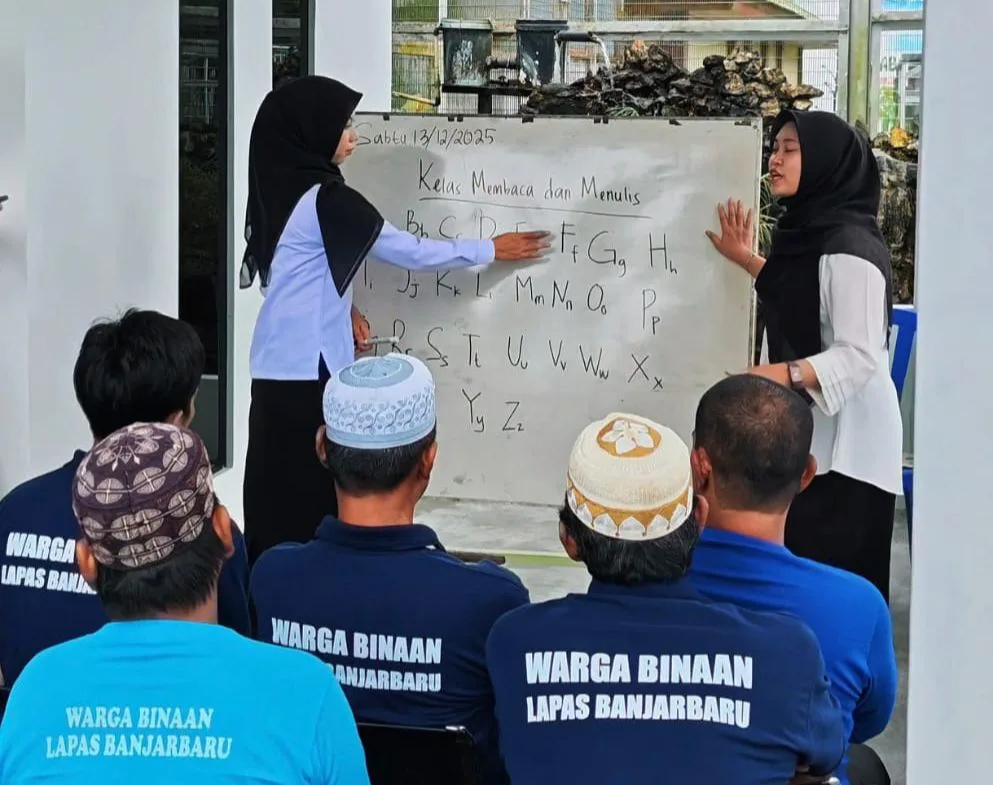 Sabtu 13/12/2025
Kelas Membaca dan Menulis
Bb Cc D E Ff Gg Hh
Ii Jj Kk Ll Mm Nn Oo Pp
Rr Ss Tt Uu Vv Ww Xx
Yy Zz
WARGA
LAPAS
WARGA BINAAN
BANJARBARU
WARGA BINAAN
LAPAS BANJARBARU
WARGA BINAAN
LAPAS BANJARBARU